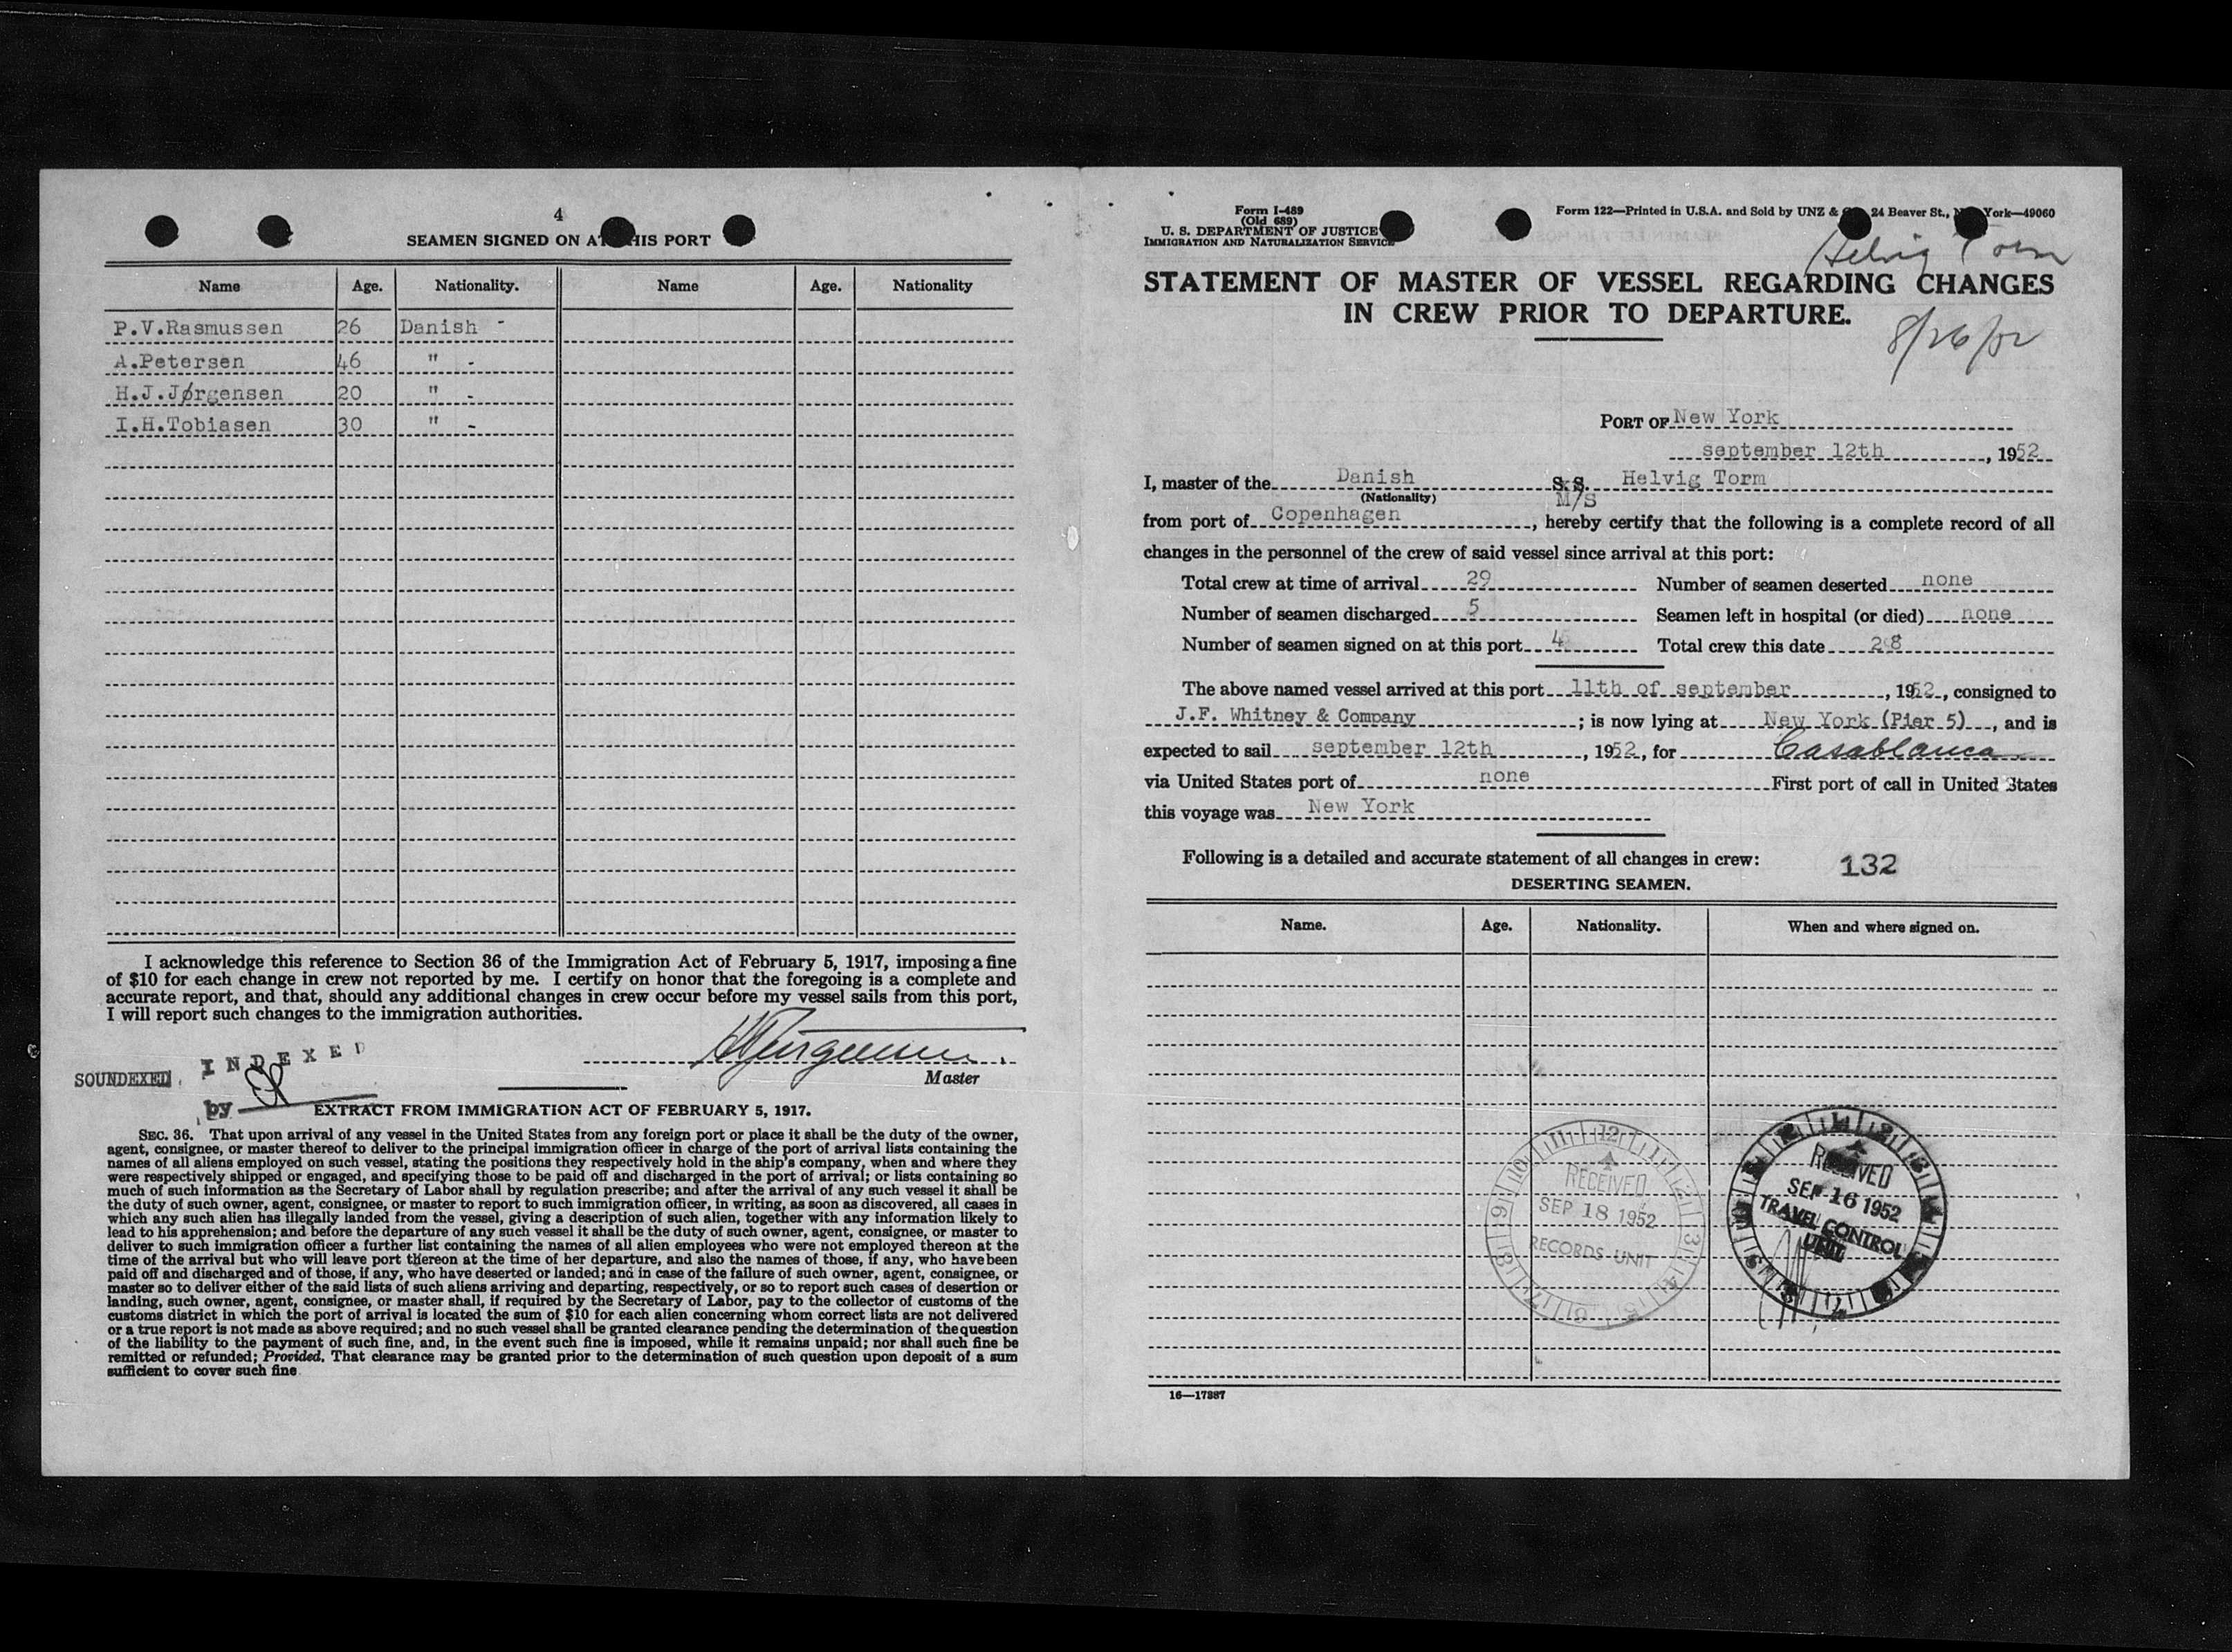 4
SEAMEN SIGNED ON AT THIS PORT
Name Age. Nationality. Name Age. Nationality
P.V.Rasmussen 26 Danish -
A.Petersen 46 " -
H.J.Jørgensen 20 " -
I.H.Tobiasen 30 " -
I acknowledge this reference to Section 36 of the Immigration Act of February 5, 1917, imposing a fine
of $10 for each change in crew not reported by me. I certify on honor that the foregoing is a complete and
accurate report, and that, should any additional changes in crew occur before my vessel sails from this port,
I will report such changes to the immigration authorities.
Master
INDEXED
SOUNDEXED
by
EXTRACT FROM IMMIGRATION ACT OF FEBRUARY 5, 1917.
SEC. 36. That upon arrival of any vessel in the United States from any foreign port or place it shall be the duty of the owner,
agent, consignee, or master thereof to deliver to the principal immigration officer in charge of the port of arrival lists containing the
names of all aliens employed on such vessel, stating the positions they respectively hold in the ship's company, when and where they
were respectively shipped or engaged, and specifying those to be paid off and discharged in the port of arrival; or lists containing so
much of such information as the Secretary of Labor shall by regulation prescribe; and after the arrival of any such vessel it shall be
the duty of such owner, agent, consignee, or master to report to such immigration officer, in writing, as soon as discovered, all cases in
which any such alien has illegally landed from the vessel, giving a description of such alien, together with any information likely to
lead to his apprehension; and before the departure of any such vessel it shall be the duty of such owner, agent, consignee, or master to
deliver to such immigration officer a further list containing the names of all alien employees who were not employed thereon at the
time of the arrival but who will leave port thereon at the time of her departure, and also the names of those, if any, who have been
paid off and discharged and of those, if any, who have deserted or landed; and in case of the failure of such owner, agent, consignee, or
master so to deliver either of the said lists of such aliens arriving and departing, respectively, or so to report such cases of desertion or
landing, such owner, agent, consignee, or master shall, if required by the Secretary of Labor, pay to the collector of customs of the
customs district in which the port of arrival is located the sum of $10 for each alien concerning whom correct lists are not delivered
or a true report is not made as above required; and no such vessel shall be granted clearance pending the determination of the question
of the liability to the payment of such fine, and, in the event such fine is imposed, while it remains unpaid; nor shall such fine be
remitted or refunded; Provided, That clearance may be granted prior to the determination of such question upon deposit of a sum
sufficient to cover such fine
Form I-489
(Old 689)
U. S. DEPARTMENT OF JUSTICE
IMMIGRATION AND NATURALIZATION SERVICE
Form 122—Printed in U.S.A. and Sold by UNZ & 24 Beaver St., New York—49060
Helvig Torm
STATEMENT OF MASTER OF VESSEL REGARDING CHANGES
IN CREW PRIOR TO DEPARTURE.
8/26/52
PORT OF New York
september 12th, 1952
I, master of the Danish S.S. Helvig Torm
(Nationality) M/S
from port of Copenhagen, hereby certify that the following is a complete record of all
changes in the personnel of the crew of said vessel since arrival at this port:
Total crew at time of arrival 29 Number of seamen deserted none
Number of seamen discharged 5 Seamen left in hospital (or died) none
Number of seamen signed on at this port 4 Total crew this date 28
The above named vessel arrived at this port 11th of september, 1952, consigned to
J.F. Whitney & Company; is now lying at New York (Pier 5), and is
expected to sail september 12th, 1952, for Casablanca.
via United States port of none First port of call in United States
this voyage was New York
Following is a detailed and accurate statement of all changes in crew:
132
DESERTING SEAMEN.
Name. Age. Nationality. When and where signed on.
RECEIVED
SEP 18 1952
RECORDS UNIT
RECEIVED
SEP 16 1952
TRAVEL CONTROL
UNIT
16—17887